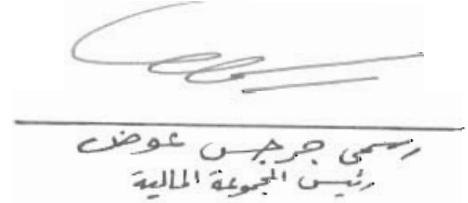 رسمي جرجس عوض
رئيس المجموعة المالية